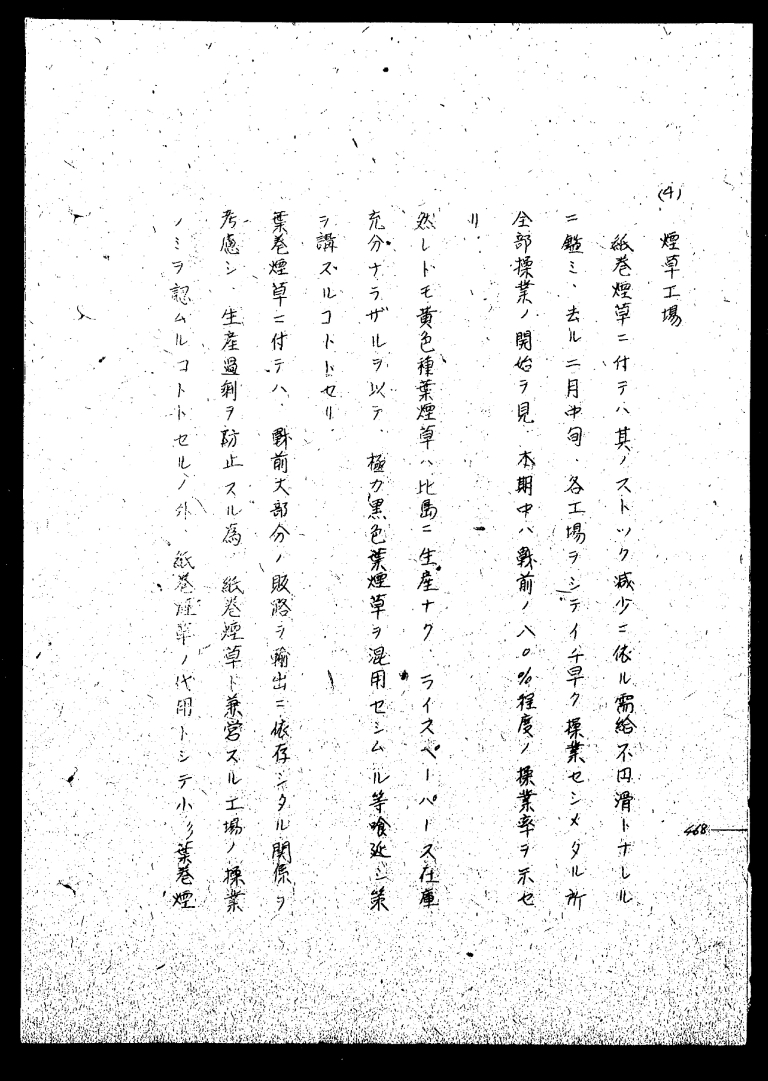 (4) 煙草工場
紙巻煙草ニ付テハ其ノストック減少ニ依ル需給不円滑トナレル
ニ鑑ミ、去ル二月中旬、各工場ヲシテイチ早ク操業セシメタル所
全部操業ノ開始ヲ見、本期中ハ戦前ノ八〇%程度ノ操業率ヲ示セ
リ、
然レトモ黄色種葉煙草ハ比島ニ生産ナク、ライスペーパース在庫
充分ナラザルヲ以テ、極力黒色葉煙草ヲ混用セシムル等喰延シ策
ヲ講ズルコトトセリ、
葉巻煙草ニ付テハ、戦前大部分ノ販路ヲ輸出ニ依存シタル関係ヲ
考慮シ、生産過剰ヲ防止スル為、紙巻煙草ト兼営スル工場ノ操業
ノミヲ認ムルコトトセルノ外、紙巻煙草ノ代用トシテ小葉巻煙
468